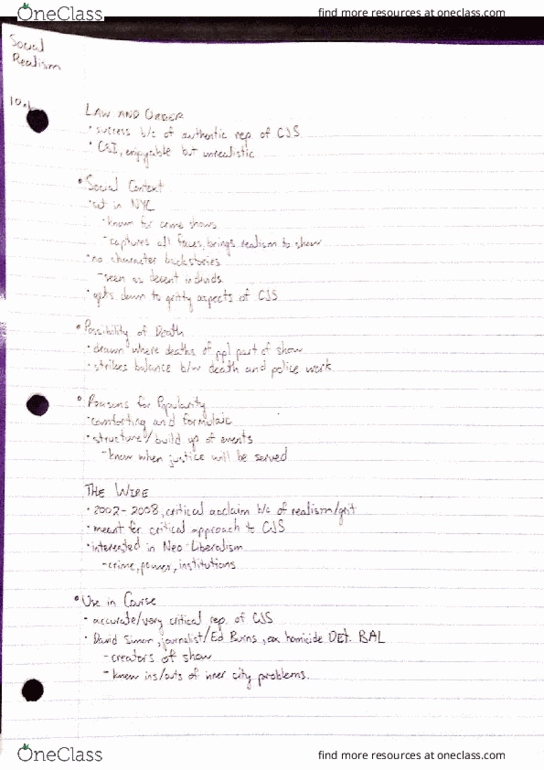 OneClass
find more resources at oneclass.com
Social
Realism
10.
LAW AND ORDER
• success b/c of authentic rep of CJS
• CSI, enjoyable but unrealistic
• Social Context
• set in NYC
- known for crime shows
- captures all faces, brings realism to show
• no character backstories
- seen as decent individs.
• gets down to gritty aspects of CJS
• Possibility of Death
• drama where deaths of ppl part of show
• strikes balance b/w death and police work
• Reasons for Popularity
• comforting and formulaic
• structure/build up of events
- know when justice will be served
THE WIRE
• 2002-2008, critical acclaim b/c of realism/grit
• meant for critical approach to CJS
• interested in Neo-Liberalism
- crime, power, institutions
• Use in Course
- accurate/very critical rep. of CJS
• David Simon, journalist/Ed Burns, ex homicide DET. BAL
- creators of show
- knew ins/outs of inner city problems.
OneClass
find more resources at oneclass.com